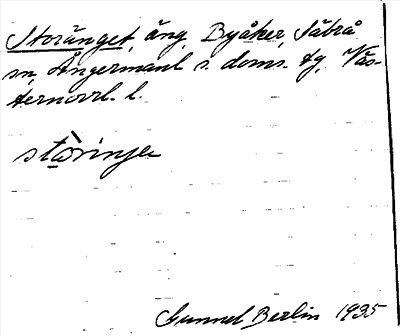 Storänget, äng, Byåker, Säbrå
sn, Ångermanl. s. doms. tg, Väs-
ternorrl. l.
stòrinje
Gunnel Berlin 1935